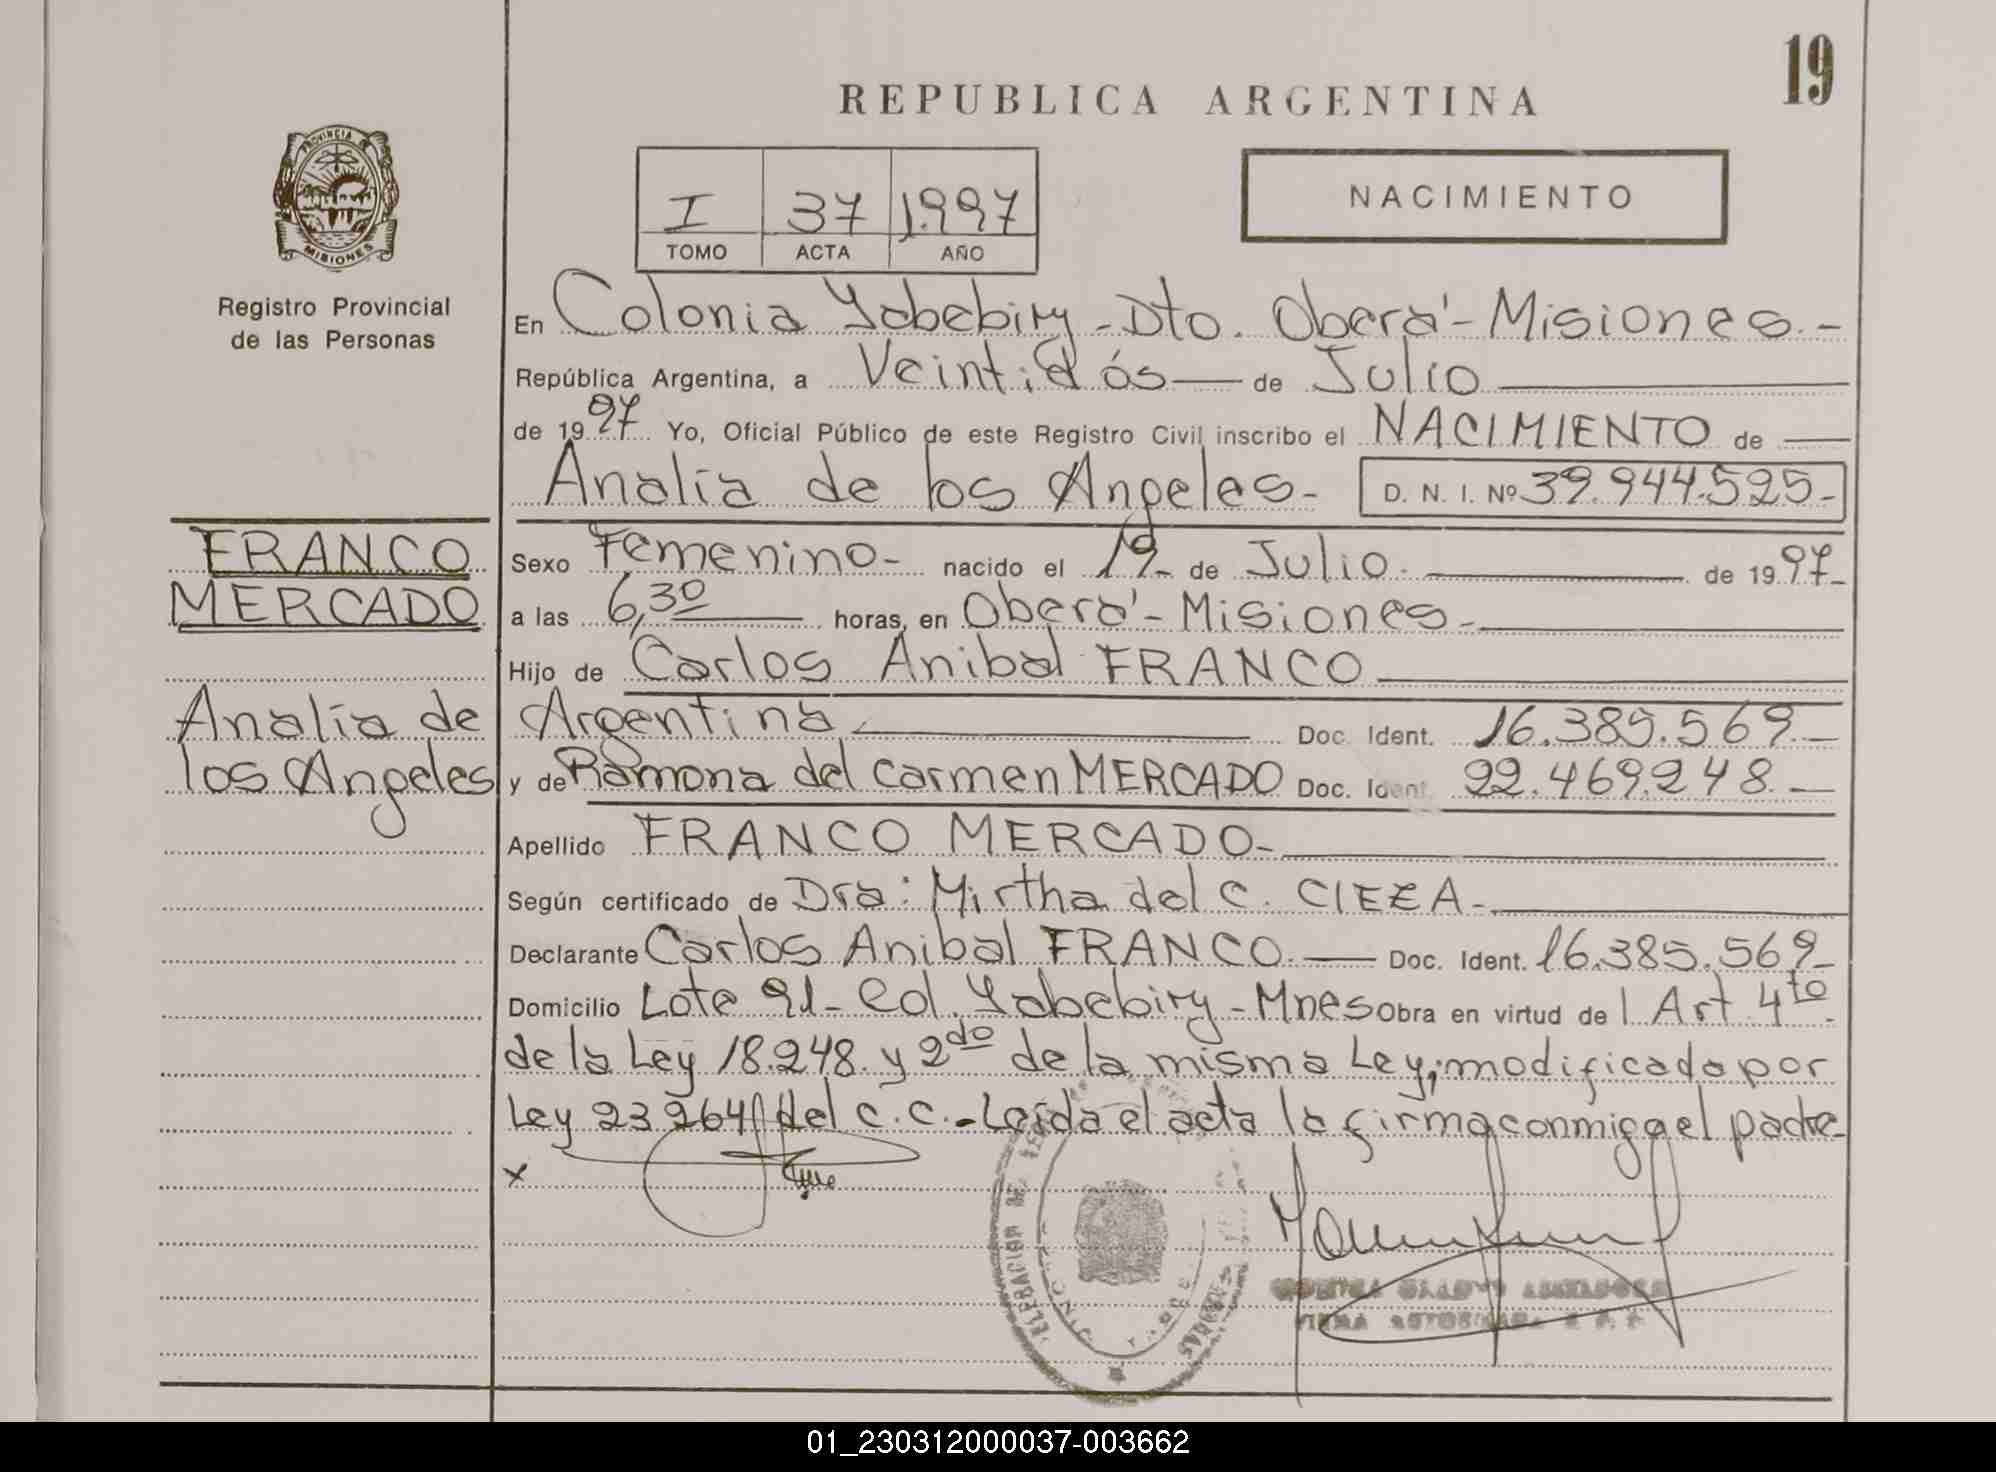 19
REPUBLICA ARGENTINA
PROVINCIA DE
MISIONES
Registro Provincial
de las Personas
I 37 1.997
TOMO ACTA AÑO
NACIMIENTO
En Colonia Yabebiry - Dto. Oberá - Misiones. -
República Argentina, a Veintidós de Julio
de 1997 Yo, Oficial Público de este Registro Civil inscribo el NACIMIENTO de
Analía de los Angeles - D. N. I. Nº 39.944.525-
FRANCO
MERCADO
Analía de
los Angeles
Sexo Femenino - nacido el 19- de Julio. de 1997-
a las 6,30 horas, en Oberá - Misiones -
Hijo de Carlos Anibal FRANCO
Argentina Doc. Ident. 16.385.569.-
y de Ramona del Carmen MERCADO Doc. Ident. 22.469.248.-
Apellido FRANCO MERCADO-
Según certificado de Dra: Mirtha del C. CIEZA-
Declarante Carlos Anibal FRANCO. Doc. Ident. 16.385.569-
Domicilio Lote 91- Col. Yabebiry - Mnes Obra en virtud del Art 4to
de la Ley 18.248. y 2do de la misma Ley, modificado por
Ley 23264 del C. C. - Leída el acta la firma conmigo el padre-
x
01_230312000037-003662